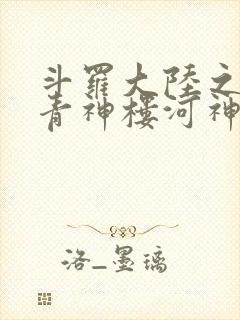 斗羅大陸之
青神樓河神
洛_墨璃